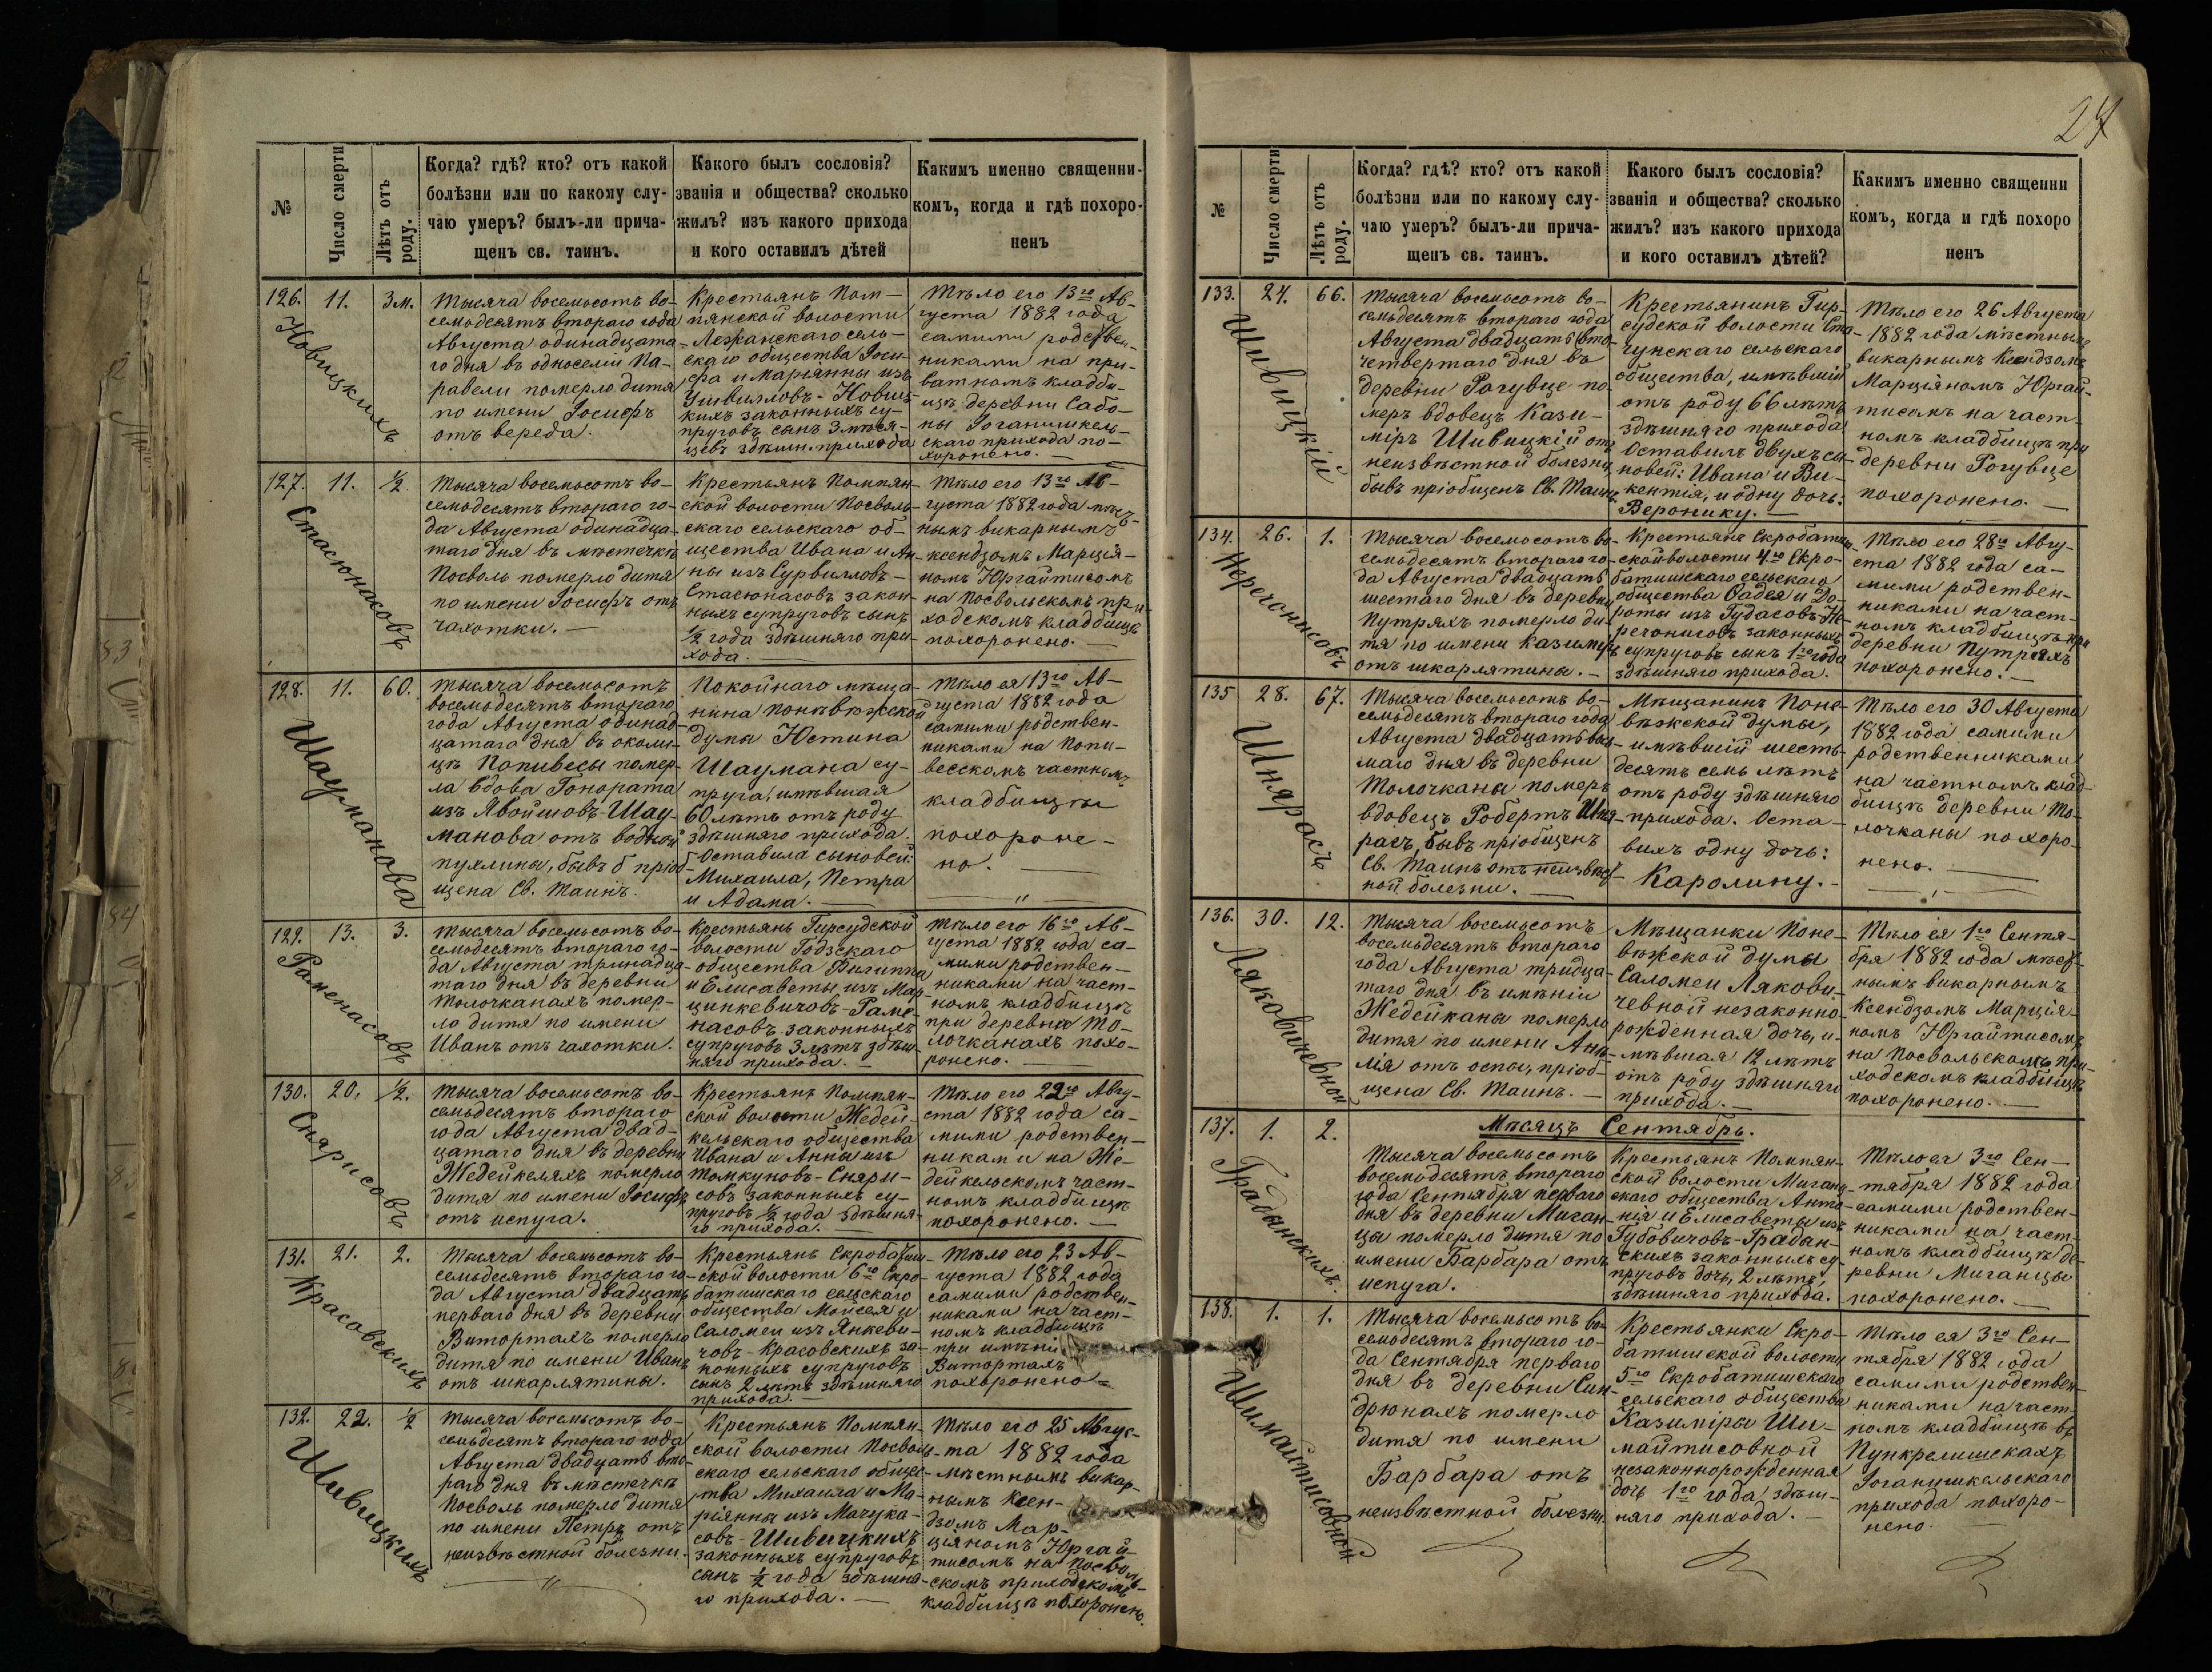 27
№
Число смерти
Лѣтъ отъ роду.
Когда? гдѣ? кто? отъ какой
болѣзни или по какому слу-
чаю умеръ? былъ-ли прича-
щенъ св. таинъ.
Какого былъ сословія?
званія и общества? сколько
жилъ? изъ какого прихода
и кого оставилъ дѣтей
Какимъ именно священни-
комъ, когда и гдѣ похоро-
ненъ
126. 11. 3 м.
Новицкихъ
Тысяча восемьсотъ во-
семьдесятъ втораго года
Августа одинадцата-
го дня въ односеліи Па-
равели померло дитя
по имени Іосифъ
отъ вереда.
Крестьянъ Пом-
пянской волости
Лежанскаго сель-
скаго общества Іоси-
фа и Марьянны изъ
Новиц-
кихъ законныхъ су-
пруговъ сынъ 3 мѣся-
цевъ здѣшн. прихода
Тѣло его 13го Ав-
густа 1882 года
самими родствен-
никами на при-
ватномъ кладби-
щѣ деревни Сабо-
ны Іоганишкель-
скаго прихода по-
хоронено.
127. 11. ½
Стасюнасовъ
Тысяча восемьсотъ во-
семьдесятъ втораго го-
да Августа одинадца-
таго дня въ мѣстечкѣ
Посволь померло дитя
по имени Іосифъ отъ
чахотки.
Крестьянъ Помпян-
ской волости Посволь-
скаго сельскаго об-
щества Ивана и Ан-
ны изъ Сурвилловъ-
Стасюнасовъ закон-
ныхъ супруговъ сынъ
½ года здѣшняго при-
хода.
Тѣло его 13го Ав-
густа 1882 года мѣст-
нымъ викарнымъ
ксендзомъ Марція-
номъ Юргайтисомъ
на Посвольскомъ при-
ходскомъ кладбищѣ
похоронено.
128. 11. 60.
Шауманова
Тысяча восемьсотъ
восемьдесятъ втораго
года Августа одинад-
цатаго дня въ околи-
цѣ Папивесы помер-
ла вдова Гонората
изъ Явойшовъ-Шау-
манова отъ водной
пухлины, бывъ б пріоб-
щена Св. Таинъ.
Покойнаго мѣща-
нина Поневѣжской
думы Юстина
Шаумана су-
пруга, имѣвшая
60 лѣтъ отъ роду
здѣшняго прихода.
Оставила сыновей:
Михаила, Петра
и Адама.
Тѣло ея 13го Ав-
густа 1882 года
самими родствен-
никами на Попи-
весскомъ частномъ
кладбищѣ
похороне-
но.
129. 13. 3.
Раменасовъ
Тысяча восемьсотъ во-
семьдесятъ втораго го-
да Августа тринадца-
таго дня въ деревни
Толочканахъ помер-
ло дитя по имени
Иванъ отъ чахотки.
Крестьянъ Гирсудской
волости Годзскаго
общества Филиппа
и Елисаветы изъ Мар-
цинкевичовъ-Раме-
насовъ законныхъ
супруговъ 3 лѣтъ здѣш-
няго прихода.
Тѣло его 16го Ав-
густа 1882 года са-
мими родствен-
никами на част-
номъ кладбищѣ
при деревни То-
лочканахъ похо-
ронено.
130. 20. ½.
Снярисовъ
Тысяча восемьсотъ во-
семьдесятъ втораго
года Августа двад-
цатаго дня въ деревни
Жедейкеляхъ померло
дитя по имени Іосифъ
отъ испуга.
Крестьянъ Помпян-
ской волости Жедей-
кельскаго общества
Ивана и Анны изъ
Томкуновъ-Сняри-
совъ законныхъ су-
пруговъ ½ года здѣшня-
го прихода.
Тѣло его 22го Авгу-
ста 1882 года са-
мими родствен-
никами на Же-
дейкельскомъ част-
номъ кладбищѣ
похоронено.
131. 21. 2.
Красовскихъ
Тысяча восемьсотъ во-
семьдесятъ втораго го-
да Августа двадцать
перваго дня въ деревни
Витортахъ померло
дитя по имени Иванъ
отъ шкарлятины.
Крестьянъ Скробатиш-
ской волости 6го Скро-
батишскаго сельскаго
общества Мойсея и
Саломеи изъ Янкеви-
човъ-Красовскихъ за-
конныхъ супруговъ
сынъ 2 лѣтъ здѣшняго
прихода.
Тѣло его 23 Ав-
густа 1882 года
самими родствен-
никами на част-
номъ кладбищѣ
при имѣніи
Витортахъ
похоронено
132. 22. ½
Шивицкихъ
Тысяча восемьсотъ во-
семьдесятъ втораго года
Августа двадцать вто-
раго дня въ мѣстечкѣ
Посволь померло дитя
по имени Петръ отъ
неизвѣстной болезни.
Крестьянъ Помпян-
ской волости Посволь-
скаго сельскаго общес-
тва Михаила и Ма-
ріянны изъ Мачука-
совъ-Шивицкихъ
законныхъ супруговъ
сынъ ½ года здѣшня-
го прихода.
Тѣло его 25 Авгус-
та 1882 года
мѣстнымъ викар-
нымъ Ксен-
дзомъ Мар-
ціяномъ Юргай-
тисомъ на Посволь-
скомъ приходскомъ
кладбищѣ похоронен.
№
Число смерти
Лѣтъ отъ роду.
Когда? гдѣ? кто? отъ какой
болѣзни или по какому слу-
чаю умеръ? былъ-ли прича-
щенъ св. таинъ.
Какого былъ сословія?
званія и общества? сколько
жилъ? изъ какого прихода
и кого оставилъ дѣтей?
Какимъ именно священни
комъ, когда и гдѣ похоро
ненъ
133. 24. 66.
Шивицкій
Тысяча восемьсотъ во-
семьдесятъ втораго года
Августа двадцать
четвертаго дня въ
деревни Рагувце по-
меръ вдовецъ Кази-
міръ Шивицкій отъ
неизвѣстной болезни,
бывъ пріобщенъ Св. Таинъ.
Крестьянинъ Гир-
судской волости
сельскаго
общества, имѣвшій
отъ роду 66 лѣтъ
здѣшняго прихода
Оставилъ двухъ сы-
новей: Ивана и Ви-
кентія, и одну дочь:
Веронику.
Тѣло его 26 Августа
1882 года мѣстнымъ
викарнымъ Ксендзомъ
Марціяномъ Юргай-
тисомъ на част-
номъ кладбищѣ при
деревни Рогувце
похоронено.
134. 26. 1.
Нерегонисовъ
Тысяча восемьсотъ во-
семьдесятъ втораго го-
да Августа двадцать
шестаго дня въ деревни
Путряхъ померло ди-
тя по имени Казиміръ
отъ шкарлятины.
Крестьянъ Скробатиш-
ской волости 4го Скро-
батишскаго сельскаго
общества Фадея и До-
роты изъ Гудасовъ-Не-
регонисовъ законныхъ
супруговъ сынъ 1го года
здѣшняго прихода.
Тѣло его 28го Авгу-
ста 1882 года са-
мими родствен-
никами на част-
номъ кладбищѣ при
деревни Путряхъ
похоронено.
135 28. 67.
Шнярасъ
Тысяча восемьсотъ во-
семьдесятъ втораго года
Августа двадцать вось-
маго дня въ деревни
Толочканы померъ
вдовецъ Робертъ Шня-
расъ, бывъ пріобщенъ
Св. Таинъ отъ неизвѣст-
ной болезни.
Мѣщанинъ Поне-
вѣжской думы,
имѣвшій шесть-
десятъ семь лѣтъ
отъ роду здѣшняго
прихода. Оста-
вихъ одну дочь:
Каролину.
Тѣло его 30 Августа
1882 года самими
родственниками
на частномъ клад-
бищѣ деревни То-
лочканы похоро-
нено.
136. 30. 12.
Ляковичевной
Тысяча восемьсотъ
восемьдесятъ втораго
года Августа тридца-
таго дня въ имѣніи
Жедейканы померло
дитя по имени
отъ оспы, пріоб-
щена Св. Таинъ.
Мѣщанки Поне-
вѣжской думы
Саломеи Лякови-
чевной незаконно-
рожденная дочь, и-
мѣвшая 12 лѣтъ
отъ роду здѣшняго
прихода.
Тѣло ея 1го Сентя-
бря 1882 года мѣст-
нымъ викарнымъ
Ксендзомъ Марція-
номъ Юргайтисомъ
на Посвольскомъ при-
ходскомъ кладбищѣ
похоронено.
Мѣсяцъ Сентябрь.
137. 1. 2.
Градынскихъ
Тысяча восемьсотъ
восемьдесятъ втораго
года Сентября перваго
дня въ деревни Миган-
цы померло дитя по
имени Барбара отъ
испуга.
Крестьянъ Помпян-
ской волости Миганц-
скаго общества Анто-
нія и Елисаветы изъ
Губовичовъ-Градан-
скихъ законныхъ су-
пруговъ дочь, 2 лѣтъ,
здѣшняго прихода.
Тѣло ея 3го Сен-
тября 1882 года
самими родствен-
никами на част-
номъ кладбищѣ де-
ревни Миганцы
похоронено.
138. 1. 1.
Шимайтисовной
Тысяча восемьсотъ во-
семьдесятъ втораго го-
да Сентября перваго
дня въ деревни Син-
дрюнахъ померло
дитя по имени
Барбара отъ
неизвѣстной болезни
Крестьянки Скро-
батишской волости
5го Скробатишскаго
сельскаго общества
Казиміры Ши-
майтисовной
незаконнорожденная
дочь 1го года здѣш-
няго прихода.
Тѣло ея 3го Сен-
тября 1882 года
самими родствен-
никами на част-
номъ кладбищѣ въ
Пункрелишскахъ
Іоганишкельскаго
прихода похоро-
нено.